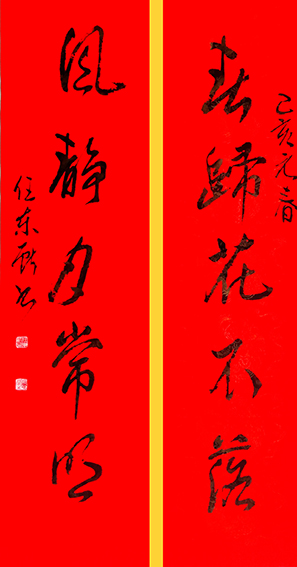 己亥元
春歸花不落
風靜月常明
任东书